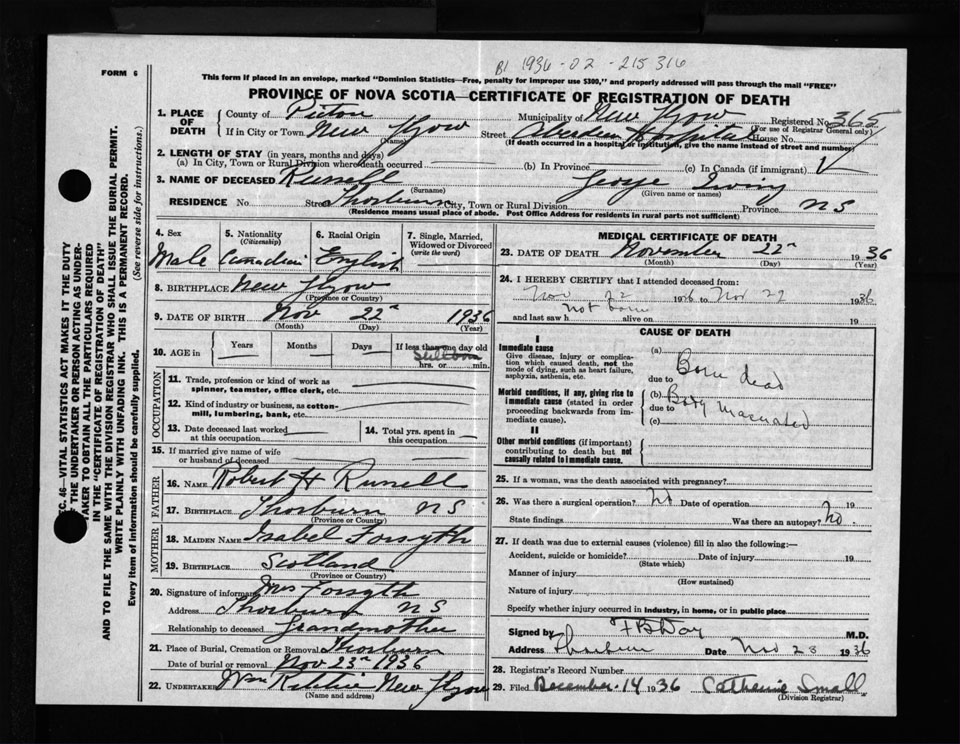 B1 1936-02-215316
FORM 6
This form if placed in an envelope, marked "Dominion Statistics—Free, penalty for improper use $300," and properly addressed will pass through the mail "FREE"
PROVINCE OF NOVA SCOTIA—CERTIFICATE OF REGISTRATION OF DEATH
SEC. 46—VITAL STATISTICS ACT MAKES IT THE DUTY
OF THE UNDERTAKER OR PERSON ACTING AS UNDER-
TAKER TO OBTAIN ALL THE PARTICULARS REQUIRED
IN THE "CERTIFICATE OF REGISTRATION OF DEATH"
AND TO FILE THE SAME WITH THE DIVISION REGISTRAR WHO SHALL ISSUE THE BURIAL PERMIT.
WRITE PLAINLY WITH UNFADING INK. THIS IS A PERMANENT RECORD.
Every item of information should be carefully supplied. (See reverse side for instructions.)
1. PLACE OF DEATH
County of Pictou Municipality of New Glgow Registered No. 365
(For use of Registrar General only)
If in City or Town New Glgow Street Aberdeen Hospital House No.
(Name) (If death occurred in a hospital or institution, give the name instead of street and number)
2. LENGTH OF STAY (in years, months and days)
(a) In City, Town or Rural Division where death occurred (b) In Province (c) In Canada (if immigrant)
3. NAME OF DECEASED Russell George Irving
(Surname) (Given name or names)
RESIDENCE No. Street Thorburn City, Town or Rural Division Province N S
(Residence means usual place of abode. Post Office Address for residents in rural parts not sufficient)
4. Sex Male
5. Nationality (Citizenship) Canadian
6. Racial Origin English
7. Single, Married, Widowed or Divorced (write the word)
8. BIRTHPLACE New Glgow
(Province or Country)
9. DATE OF BIRTH Nov 22nd 1936
(Month) (Day) (Year)
10. AGE in Years Months Days If less than one day old
Stillborn
hrs. or min.
OCCUPATION
11. Trade, profession or kind of work as spinner, teamster, office clerk, etc.
12. Kind of industry or business, as cotton-mill, lumbering, bank, etc.
13. Date deceased last worked at this occupation
14. Total yrs. spent in this occupation
15. If married give name of wife or husband of deceased
FATHER
16. NAME Robert H Russell
17. BIRTHPLACE Thorburn N S
(Province or Country)
MOTHER
18. MAIDEN NAME Isabel Forsyth
19. BIRTHPLACE Scotland
(Province or Country)
20. Signature of informant Mrs Forsyth
Address Thorburn N S
Relationship to deceased Grandmother
21. Place of Burial, Cremation or Removal Thorburn
Date of burial or removal Nov 23rd 1936
22. UNDERTAKER Wm Ritchie New Glgow
(Name and address)
MEDICAL CERTIFICATE OF DEATH
23. DATE OF DEATH November 22nd 1936
(Month) (Day) (Year)
24. I HEREBY CERTIFY that I attended deceased from:
Nov 22 1936 to Nov 22 1936
and last saw h not born alive on 19
CAUSE OF DEATH
I
Immediate cause
Give disease, injury or complication which caused death, not the mode of dying, such as heart failure, asphyxia, asthenia, etc.
(a) Born dead
due to
Morbid conditions, if any, giving rise to immediate cause (stated in order proceeding backwards from immediate cause).
(b) Body Macerated
due to
(c)
II
Other morbid conditions (if important) contributing to death but not causally related to immediate cause.
25. If a woman, was the death associated with pregnancy?
26. Was there a surgical operation? No Date of operation 19
State findings Was there an autopsy? No.
27. If death was due to external causes (violence) fill in also the following:—
Accident, suicide or homicide? Date of injury 19
(State which)
Manner of injury
(How sustained)
Nature of injury
Specify whether injury occurred in industry, in home, or in public place
Signed by H B Day M.D.
Address Thorburn Date Nov 23 1936
28. Registrar's Record Number
29. Filed December 14 1936 Catherine Small
(Division Registrar)